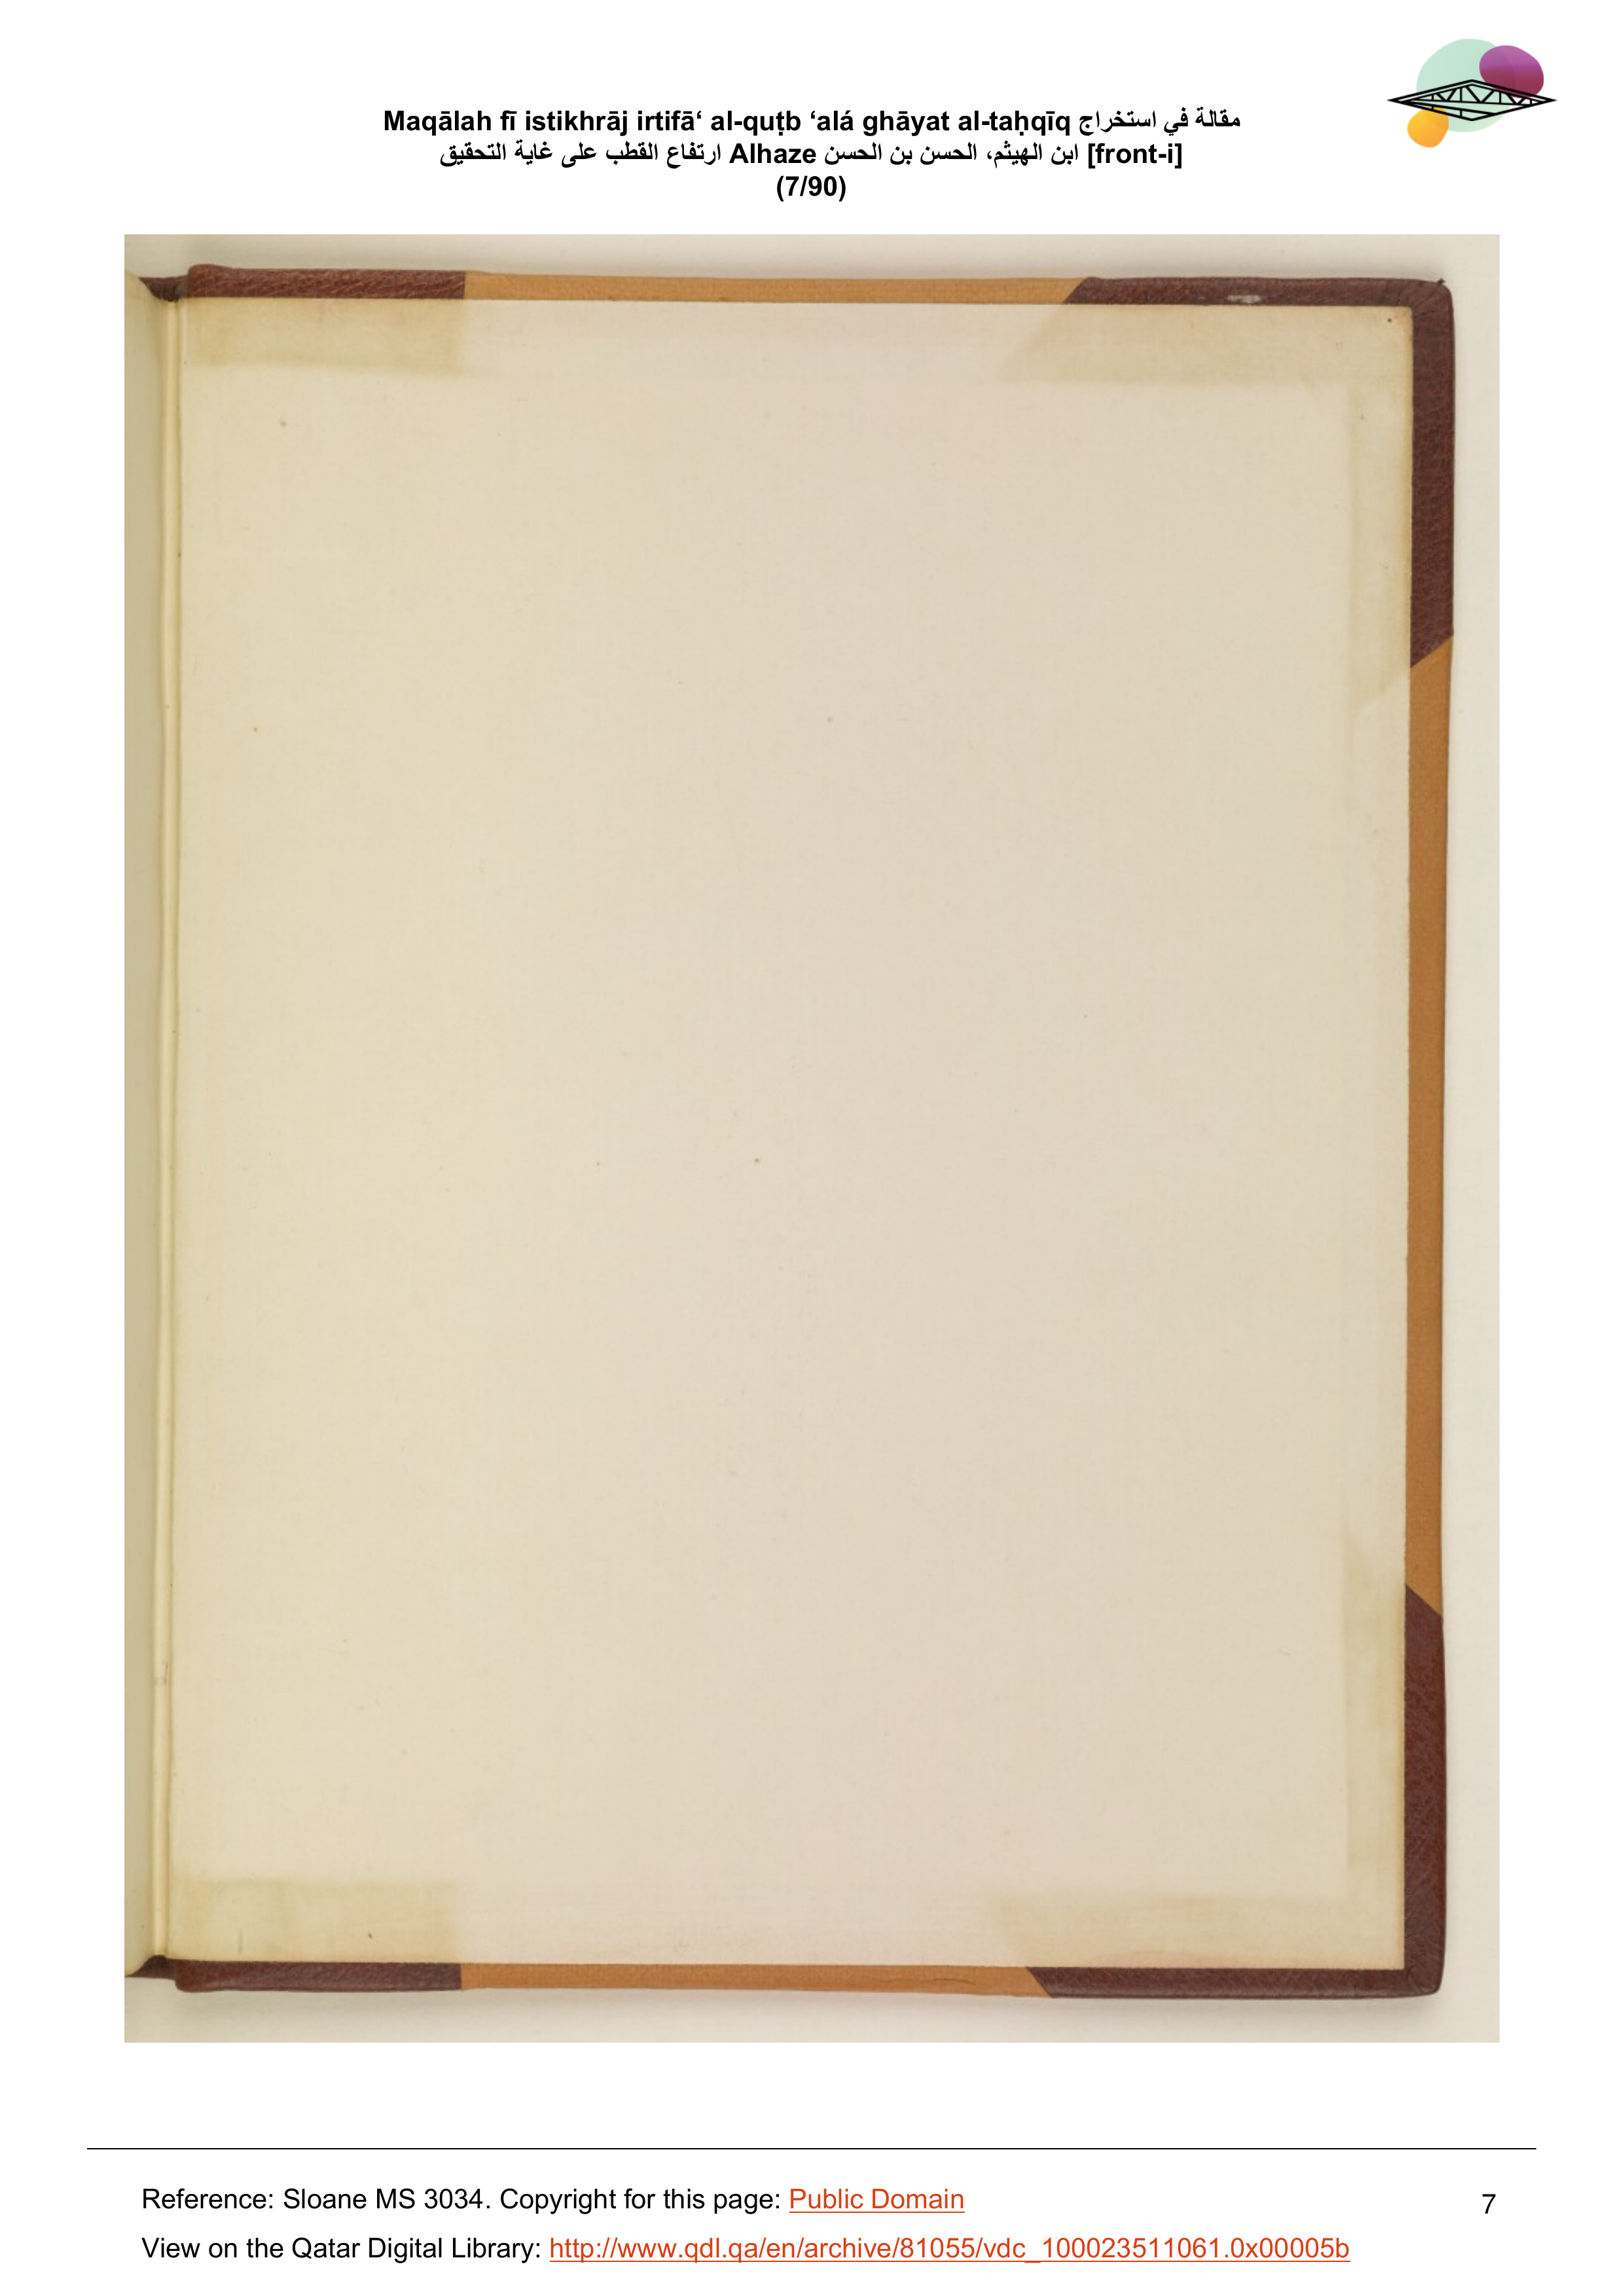 Maqālah fī istikhrāj irtifā‘ al-quṭb ‘alá ghāyat al-taḥqīq مقالة في استخراج
ارتفاع القطب على غاية التحقيق Alhaze ابن الهيثم، الحسن بن الحسن [front-i]
(7/90)
Reference: Sloane MS 3034. Copyright for this page: Public Domain
7
View on the Qatar Digital Library: http://www.qdl.qa/en/archive/81055/vdc_100023511061.0x00005b